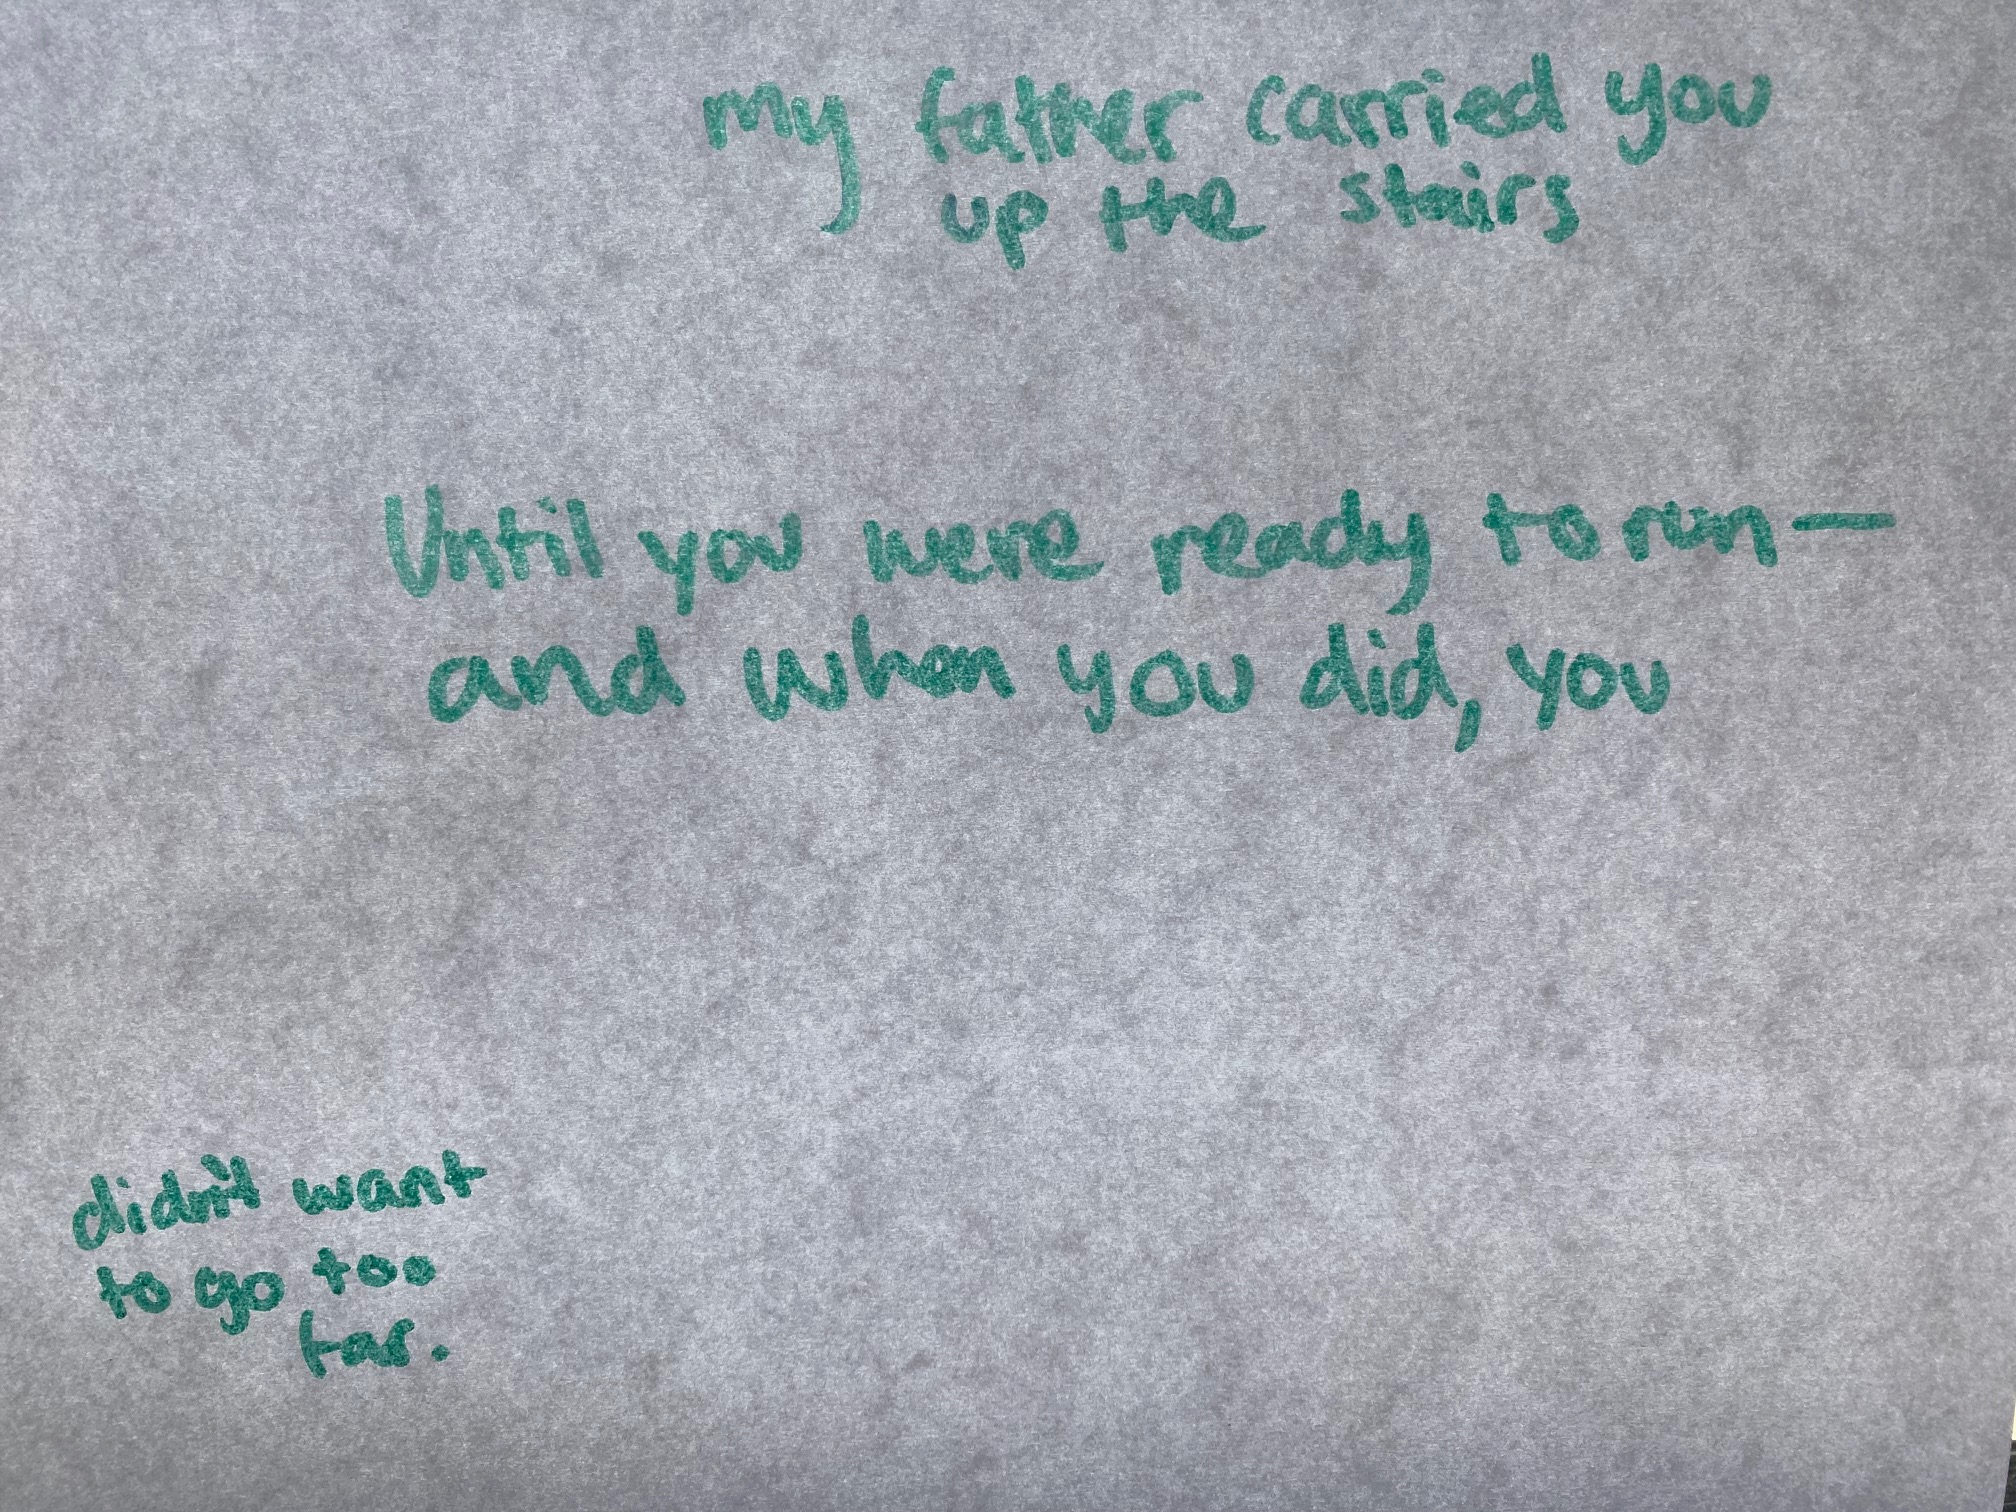 my father carried you
up the stairs
Until you were ready to run—
and when you did, you
didn't want
to go too
far.